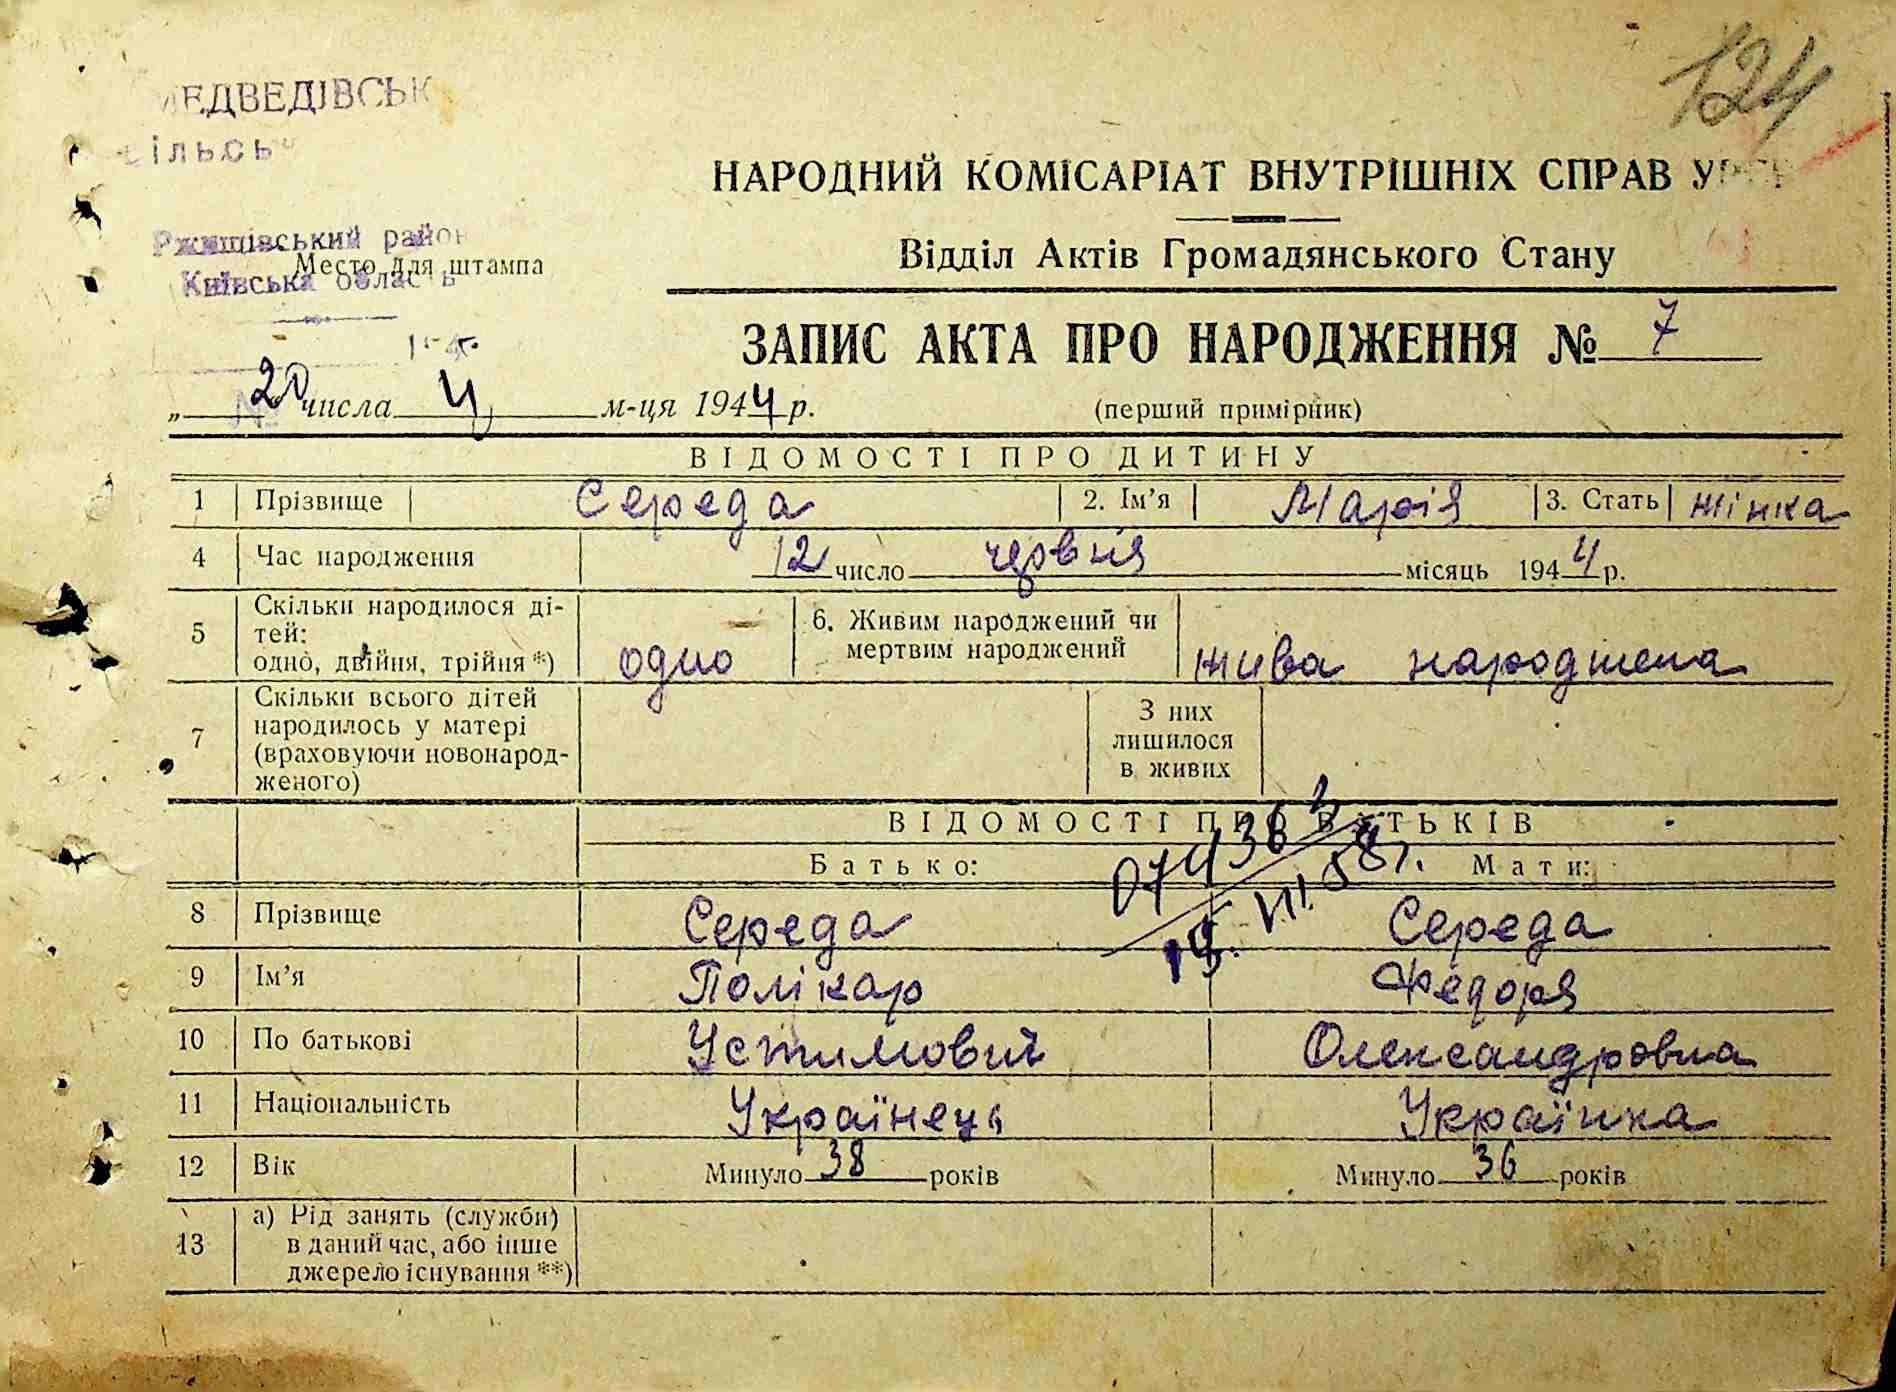 124
МЕДВЕДІВСЬК
сільсь
НАРОДНИЙ КОМІСАРІАТ ВНУТРІШНІХ СПРАВ УРСР
Ржищівський район
Место для штампа
Київська область
Відділ Актів Громадянського Стану
ЗАПИС АКТА ПРО НАРОДЖЕННЯ № 7
„ 20 числа 4 м-ця 1944 р.
(перший примірник)
ВІДОМОСТІ ПРО ДИТИНУ
1 Прізвище Середа 2. Ім’я Марія 3. Стать жінка
4 Час народження 12 число червня місяць 1944 р.
5 Скільки народилося ді-
тей:
одно, двійня, трійня *) одно
6. Живим народжений чи
мертвим народжений жива народжена
7 Скільки всього дітей
народилось у матері
(враховуючи новонарод-
женого)
З них
лишилося
в живих
ВІДОМОСТІ ПРО БАТЬКІВ
Батько: Мати:
074363
19. VII. 58 г.
8 Прізвище Середа Середа
9 Ім’я Полікар Федоря
10 По батькові Устимовий Олександровна
11 Національність Українець Українка
12 Вік Минуло 38 років Минуло 36 років
13 а) Рід занять (служби)
в даний час, або інше
джерело існування **)